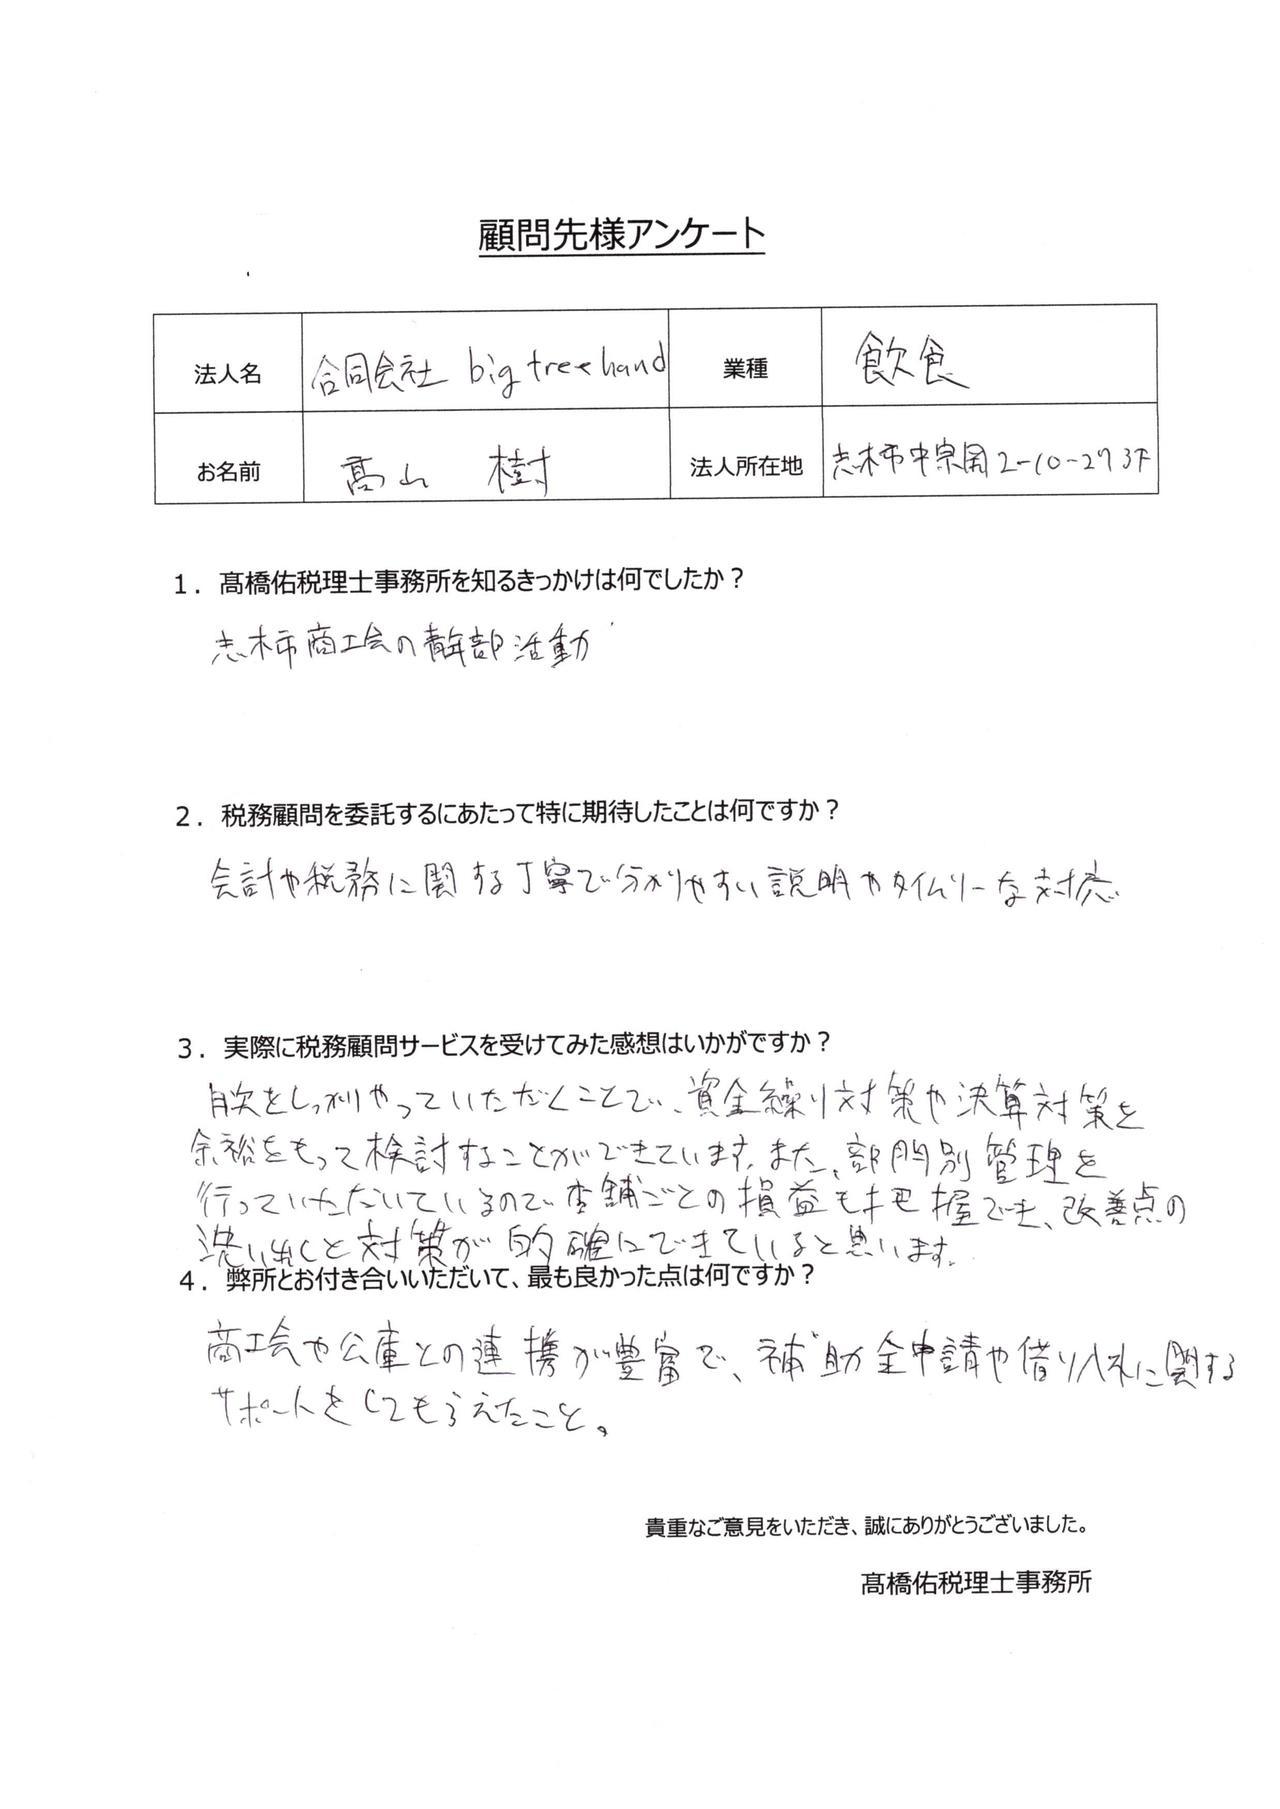 顧問先様アンケート
法人名 合同会社 big tree hand 業種 飲食
お名前 髙山 樹 法人所在地 志木市中宗岡2-10-27 3F
1．髙橋佑税理士事務所を知るきっかけは何でしたか？
志木市商工会の青年部活動
2．税務顧問を委託するにあたって特に期待したことは何ですか？
会計や税務に関する丁寧で分かりやすい説明やタイムリーな対応
3．実際に税務顧問サービスを受けてみた感想はいかがですか？
月次をしっかりやっていただくことで、資金繰り対策や決算対策を
余裕をもって検討することができています。また、部門別管理を
行っていただいているので店舗ごとの損益も把握でき、改善点の
洗い出しと対策が的確にできていると思います。
4．弊所とお付き合いいただいて、最も良かった点は何ですか？
商工会や公庫との連携が豊富で、補助金申請や借り入れに関する
サポートをしてもらえたこと。
貴重なご意見をいただき、誠にありがとうございました。
髙橋佑税理士事務所